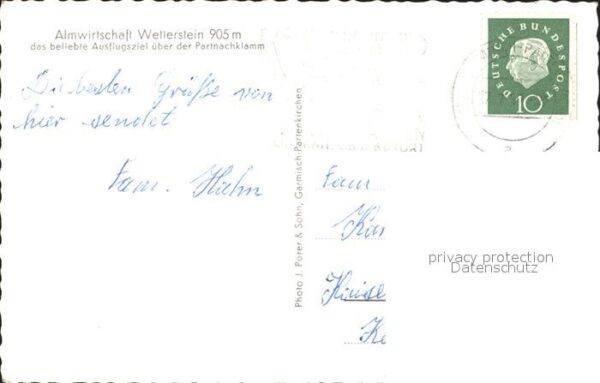 Almwirtschaft Wetterstein 905 m
das beliebte Ausflugsziel über der Partnachklamm
Die besten Grüße von
hier sendet
Fam. Hahn
Photo J. Porer & Sohn, Garmisch-Partenkirchen
DEUTSCHE BUNDESPOST
10
Fam
privacy protection
Datenschutz